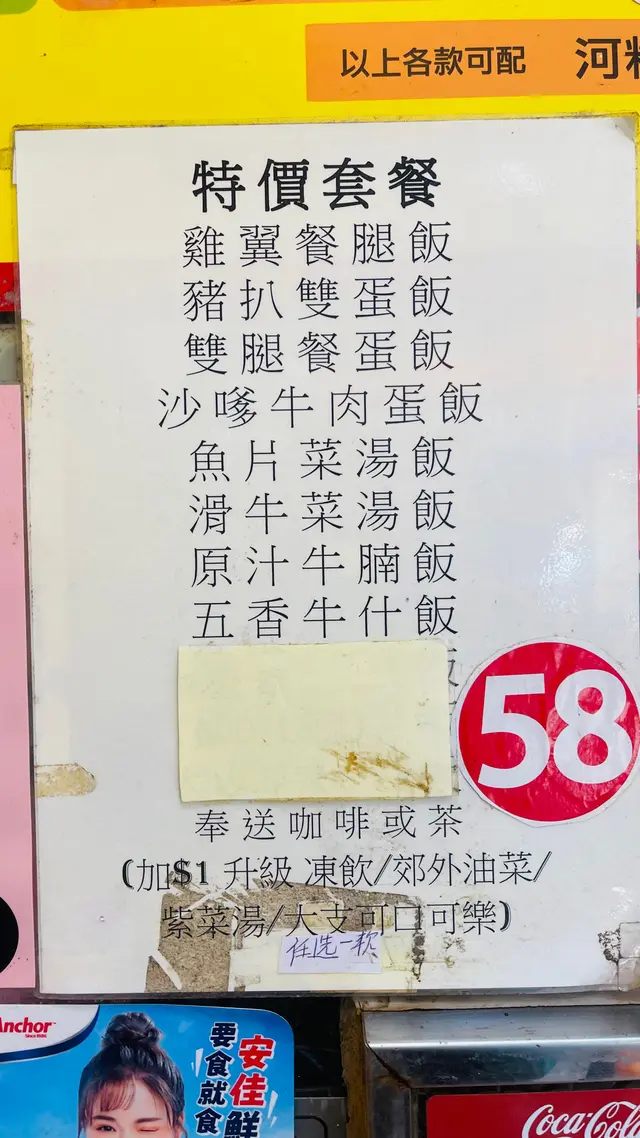 以上各款可配 河粉
特價套餐
雞翼餐腿飯
豬扒雙蛋飯
雙腿餐蛋飯
沙嗲牛肉蛋飯
魚片菜湯飯
滑牛菜湯飯
原汁牛腩飯
五香牛什飯
飯
58
奉送咖啡或茶
(加$1 升級 凍飲/郊外油菜/
紫菜湯/大支可口可樂)
任选一款
Anchor
Since 1886
安佳鮮
要食就食
Coca-Cola